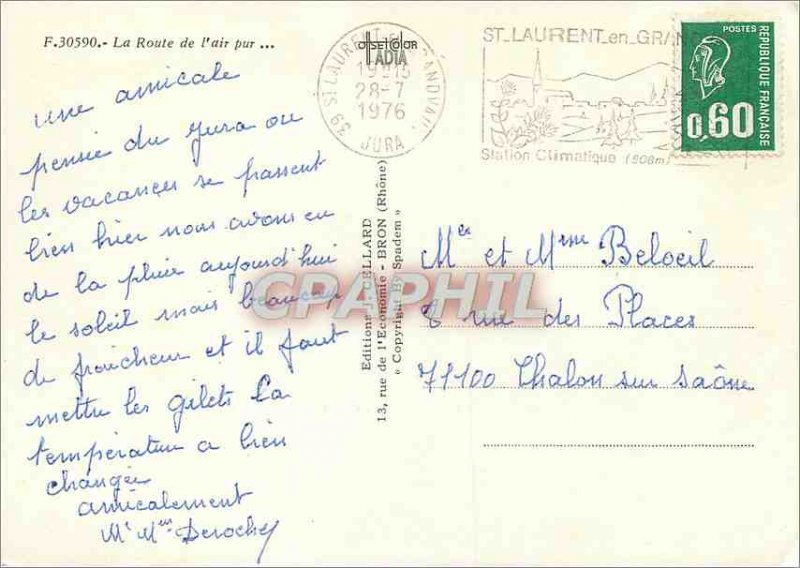 F.30590.- La Route de l'air pur ...
une amicale
pensée du Jura ou
les vacances se passent
bien hier nous avons eu
de la pluie aujourd'hui
le soleil mais beaucoup
de fraicheur et il faut
mettre les gilets la
température a bien
changée
amicalement
Mr Mme Deroche
offset color
LADIA
39 ST LAURENT EN GRANDVAUX
19H15
28-7
1976
JURA
ST_LAURENT_en_GRAN
Station Climatique (908m)
POSTES
REPUBLIQUE FRANÇAISE
0,60
Editions J. CELLARD
13, rue de l'Economie - BRON (Rhône)
« Copyright By Spadem »
CPAPHIL
Mr et Mme Beloeil
8 rue des Places
71100 Chalon sur Saône